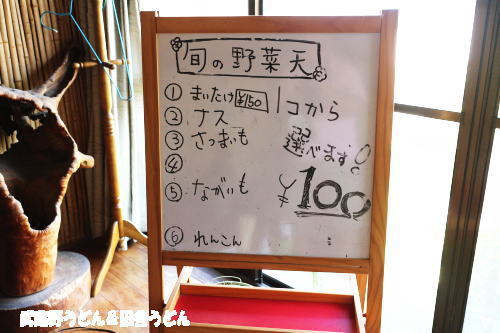 旬の野菜天
① まいたけ ¥150
② ナス
③ さつまいも
④
⑤ ながいも
⑥ れんこん
1コから
選べます!
¥100
武蔵野うどん&田舎うどん